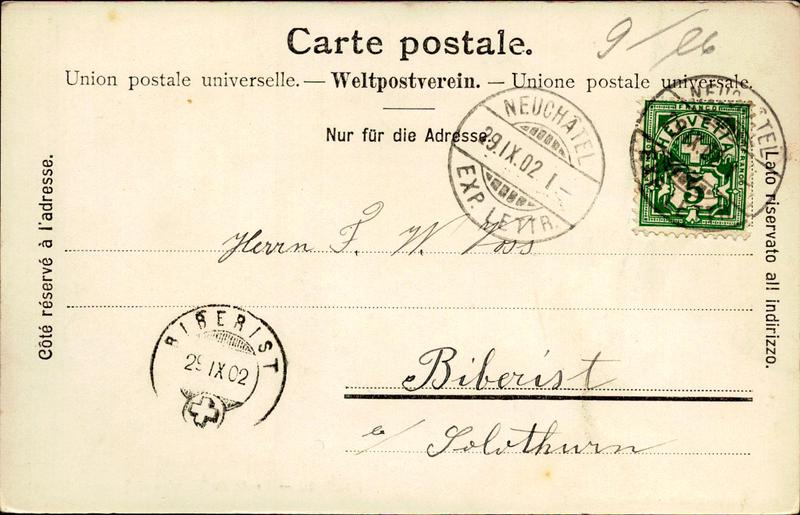 Carte postale.
9/26
Union postale universelle. — Weltpostverein. — Unione postale universale.
Nur für die Adresse.
NEUCHÂTEL
29.IX.02 I –
EXP. LETTR.
NEUCHÂTEL
FRANCO
HELVETIA
5
Côté réservé à l'adresse.
Lato riservato all' indirizzo.
Herrn F. W. Voss
BIBERIST
29 IX 02
Biberist
b/ Solothurn